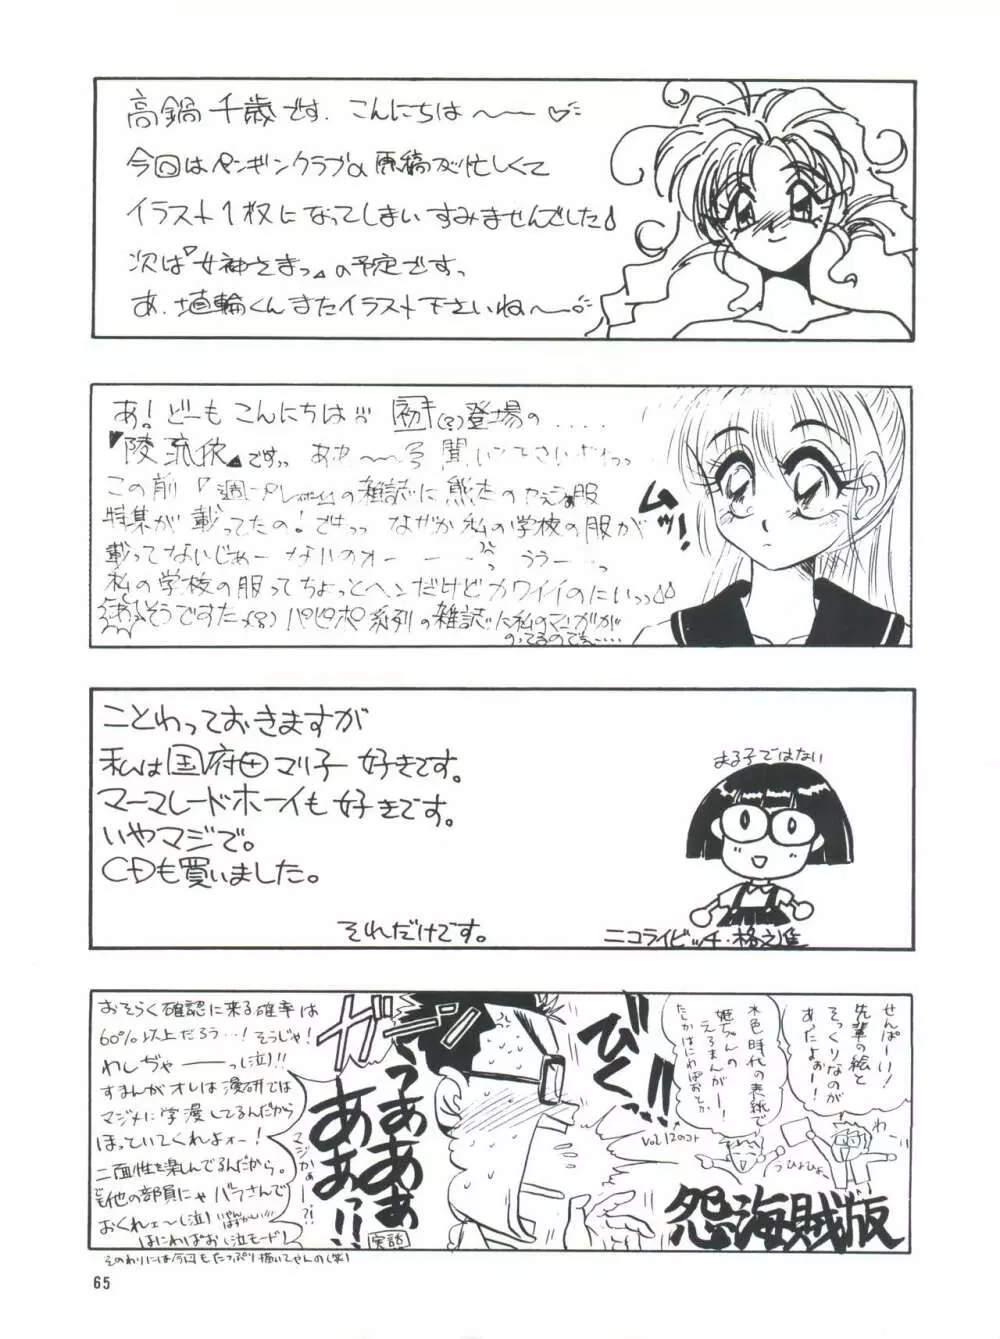 高鍋千歳です. こんにちは〜〜♡
今回はペンギンクラブの原稿が忙しくて
イラスト1枚になってしまいすみませんでした
次は『女神さまっ』の予定ですっ
あ.埴輪くんまたイラスト下さいね〜
あ!どーもこんにちは!!! 初(?)登場の.....
です
この前『週一プレイボーイ』の雑誌に
服
特集が載ってたの!でもっっ なぜか私の学校の服が
載ってないじゃーないのォーーー っ ううーーっ
私の学校の服ってちょっとヘンだけどカワイイのにいっっ
そうですた(?) パピポ系列の雑誌に私のマンガが
のってるのでぇ……
ムッ!
ことわっておきますが
私は国府田マリ子好きです。
マーマレードボーイも好きです。
いやマジで。
CDも買いました。
それだけです。
まる子ではない
ニコライビッチ・格之進
せんぱーい!
先輩の絵と
そっくりなのが
あったよぉー!
わーい
水色時代の表紙で
姫ちゃんの
えろまんがー!
たしかはにわぱおとか
Vol 12のコト
うひょひょ
怨海賊版
びくっ
ガガ
うああああぁ
ああ!!
マジかぁー!?
実話
おそらく確認に来る確率は
60%以上だろう…!そうじゃ!
わしぢゃーーっ(泣)!!
すまんがオレは漫研では
マジメに学漫してるんだから
ほっていてくれよォー!
二面性を楽しんでるんだから。
でも他の部員にゃバラさんで
おくれェ〜(泣) いやんはずかしい!!
はにわぱお(泣モード)
そのわりには今回もたっぷり描いてやんの(笑)
65